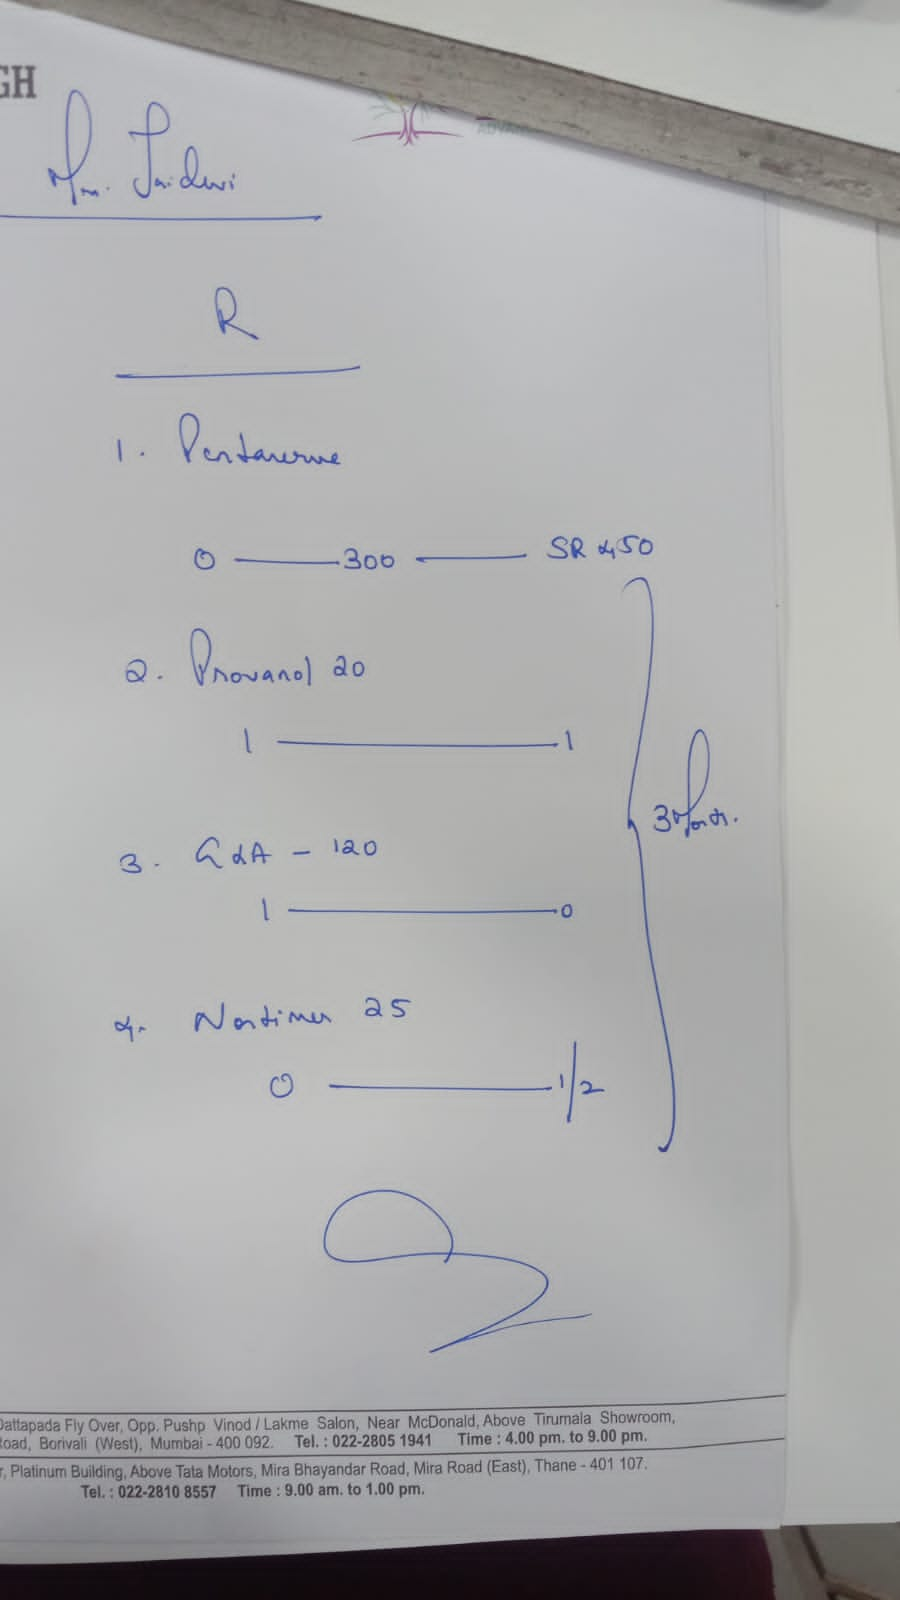 GH
R
1. Pentanerve
0 — 300 — SR 450
2. Provanol 20
1 — 1
3. G LA - 120
1 — 0
4. Nortimer 25
0 — 1/2
3
Dattapada Fly Over, Opp. Pushp Vinod / Lakme Salon, Near McDonald, Above Tirumala Showroom,
Road, Borivali (West), Mumbai - 400 092. Tel. : 022-2805 1941 Time : 4.00 pm. to 9.00 pm.
r, Platinum Building, Above Tata Motors, Mira Bhayandar Road, Mira Road (East), Thane - 401 107.
Tel. : 022-2810 8557 Time : 9.00 am. to 1.00 pm.